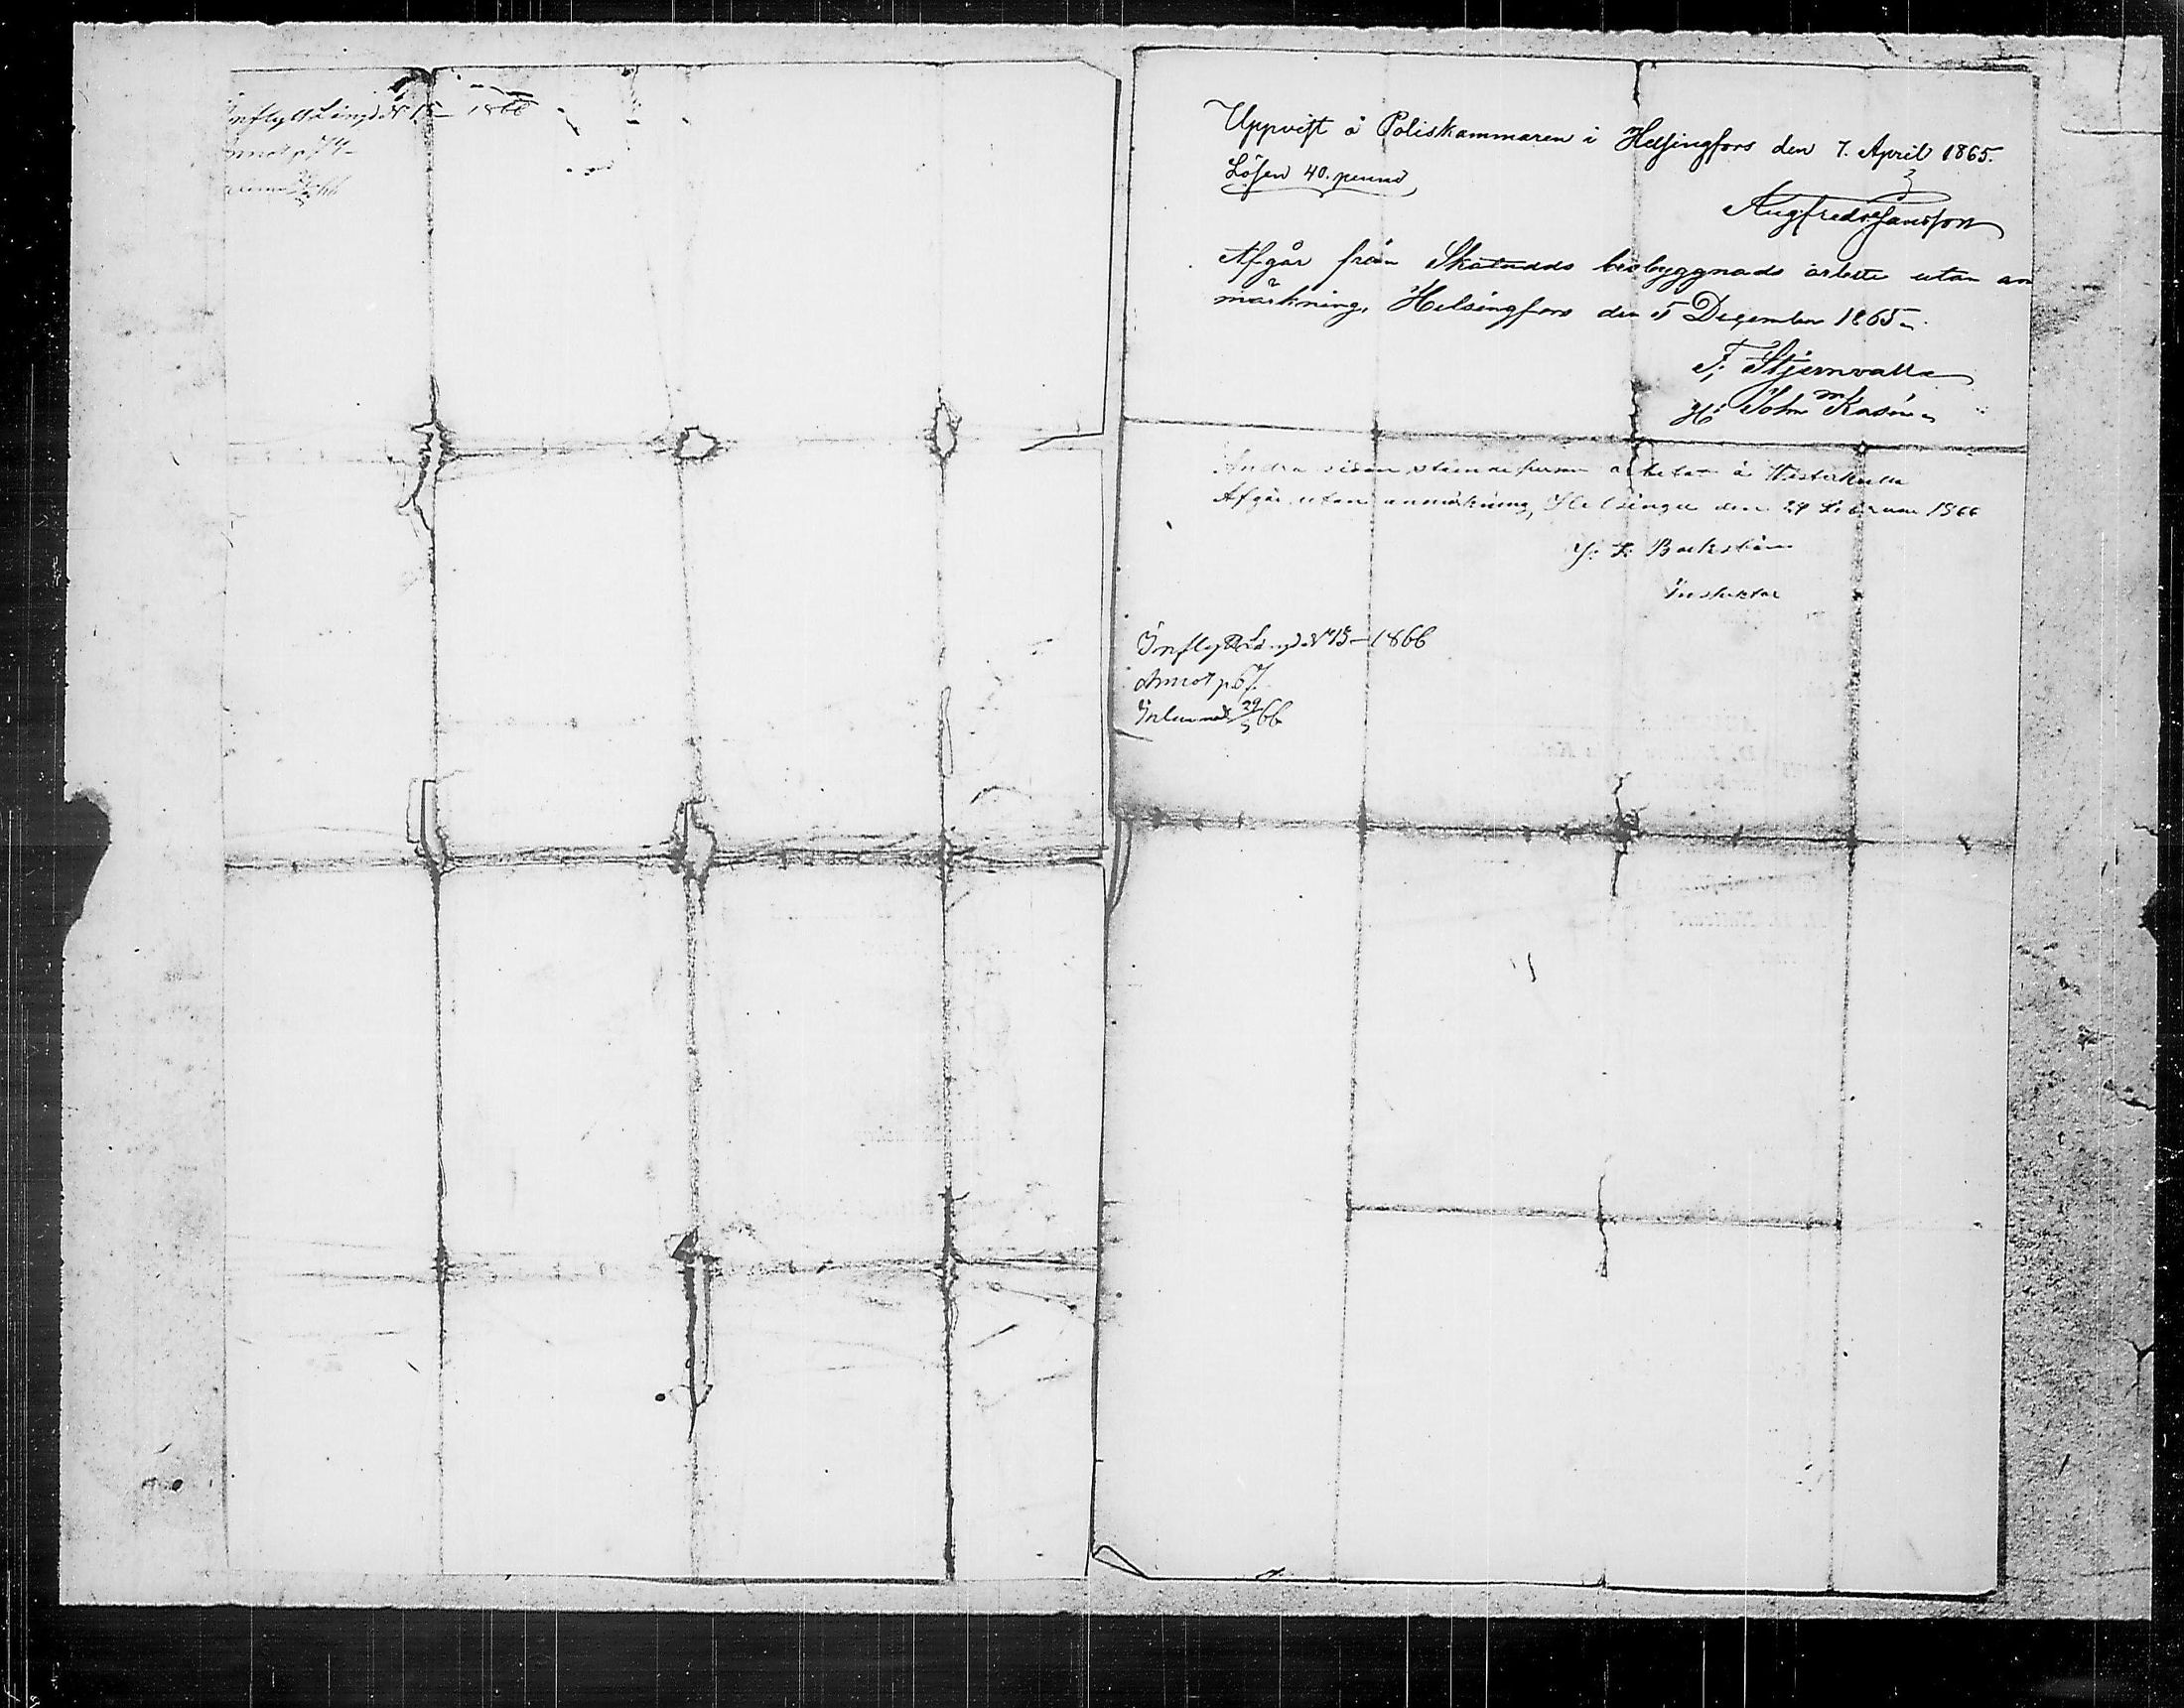 Inflytt Längd N 15 – 1866
Uppvist å Poliskammaren i Helsingfors den 7. April 1865.
Lösen 40. penni
Augfredr Jansson
Afgår från Skatudds brobyggnads arbete utan an
märkning, Helsingfors den 5 December 1865.
F. Stjernvall
John Kasén
Andra sidan stående person arbetat å Westerkulla
Afgår utan anmärkning, Helsinge den 24 Februari 1866
Inspektor
Inflytt Längd N 15 – 1866
Annot p 67.
Inlemnadt 29/3 66